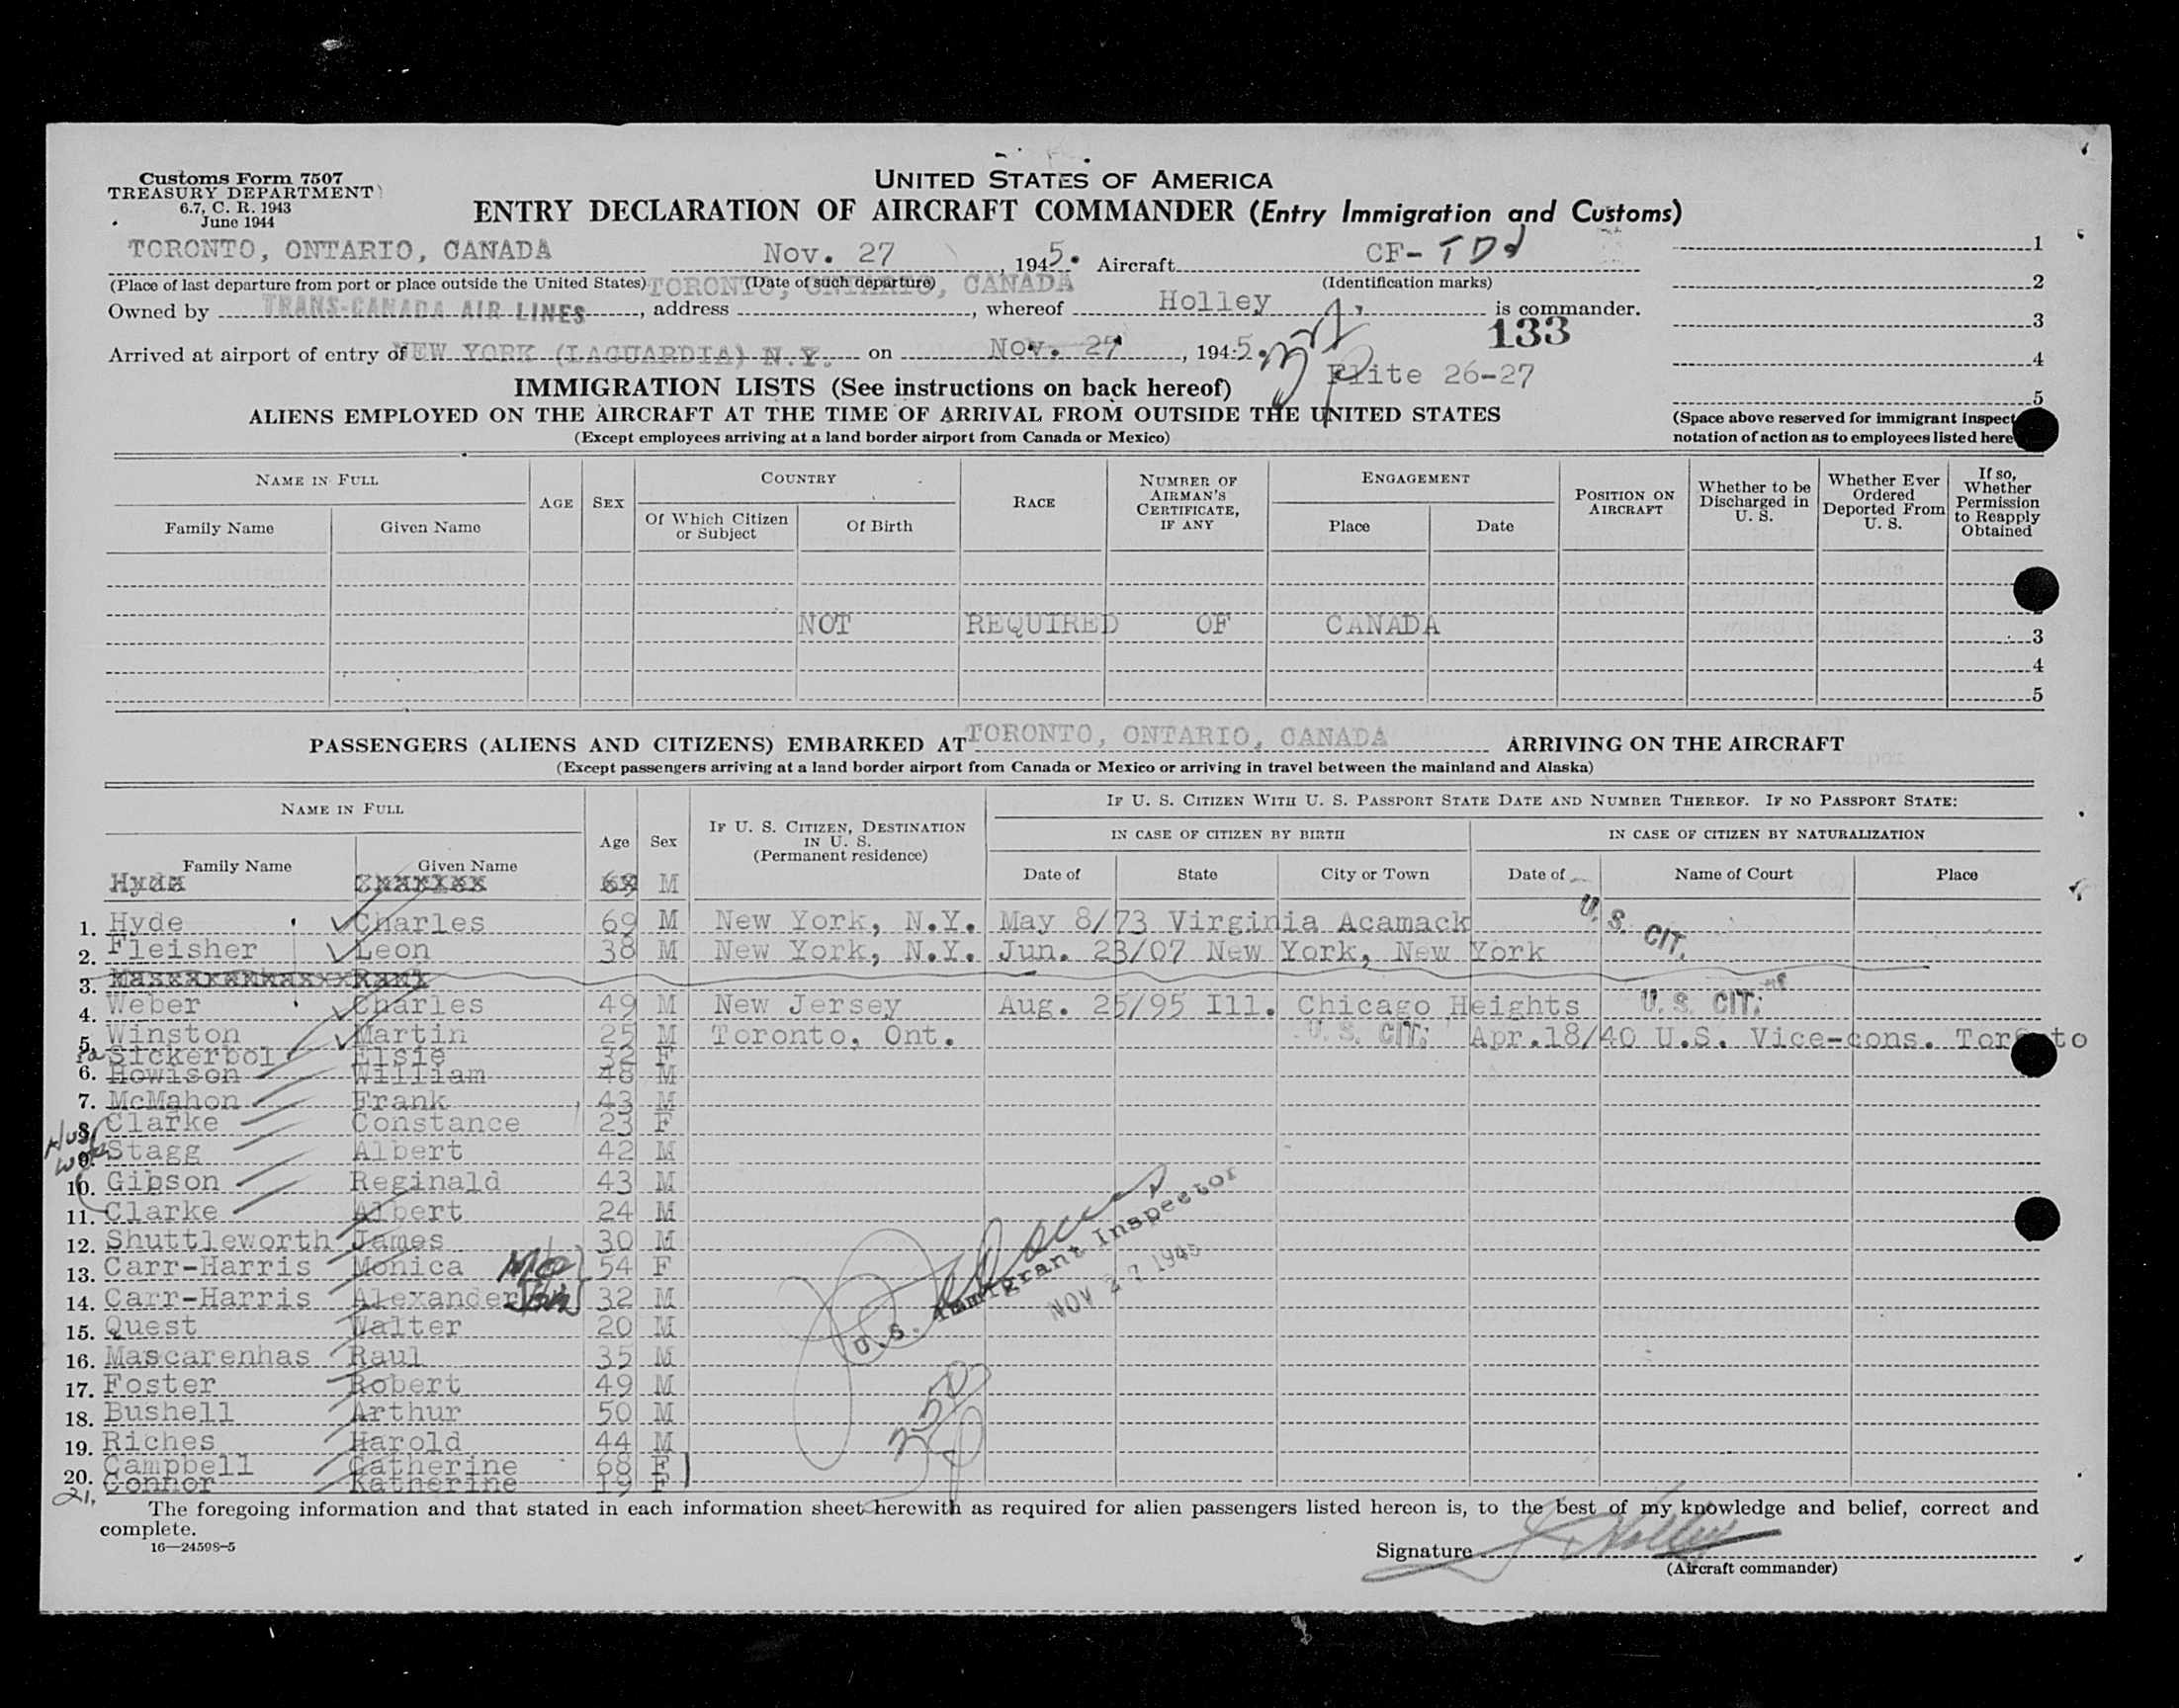 Customs Form 7507
TREASURY DEPARTMENT
6.7, C. R. 1943
June 1944
UNITED STATES OF AMERICA
ENTRY DECLARATION OF AIRCRAFT COMMANDER (Entry Immigration and Customs)
TORONTO, ONTARIO, CANADA Nov. 27, 1945. Aircraft CF-TDJ 1
(Place of last departure from port or place outside the United States) (Date of such departure) (Identification marks) 2
TORONTO, ONTARIO, CANADA
Owned by TRANS-CANADA AIR LINES, address, whereof Holley is commander. 3
133
Arrived at airport of entry of NEW YORK (LAGUARDIA) N.Y. on Nov. 27, 1945. 4
Flite 26-27
IMMIGRATION LISTS (See instructions on back hereof) 5
ALIENS EMPLOYED ON THE AIRCRAFT AT THE TIME OF ARRIVAL FROM OUTSIDE THE UNITED STATES
(Space above reserved for immigrant inspect
(Except employees arriving at a land border airport from Canada or Mexico)
notation of action as to employees listed here
NAME IN FULL
Family Name Given Name
AGE SEX
COUNTRY
Of Which Citizen or Subject Of Birth
RACE
NUMBER OF AIRMAN'S CERTIFICATE, IF ANY
ENGAGEMENT
Place Date
POSITION ON AIRCRAFT
Whether to be Discharged in U. S.
Whether Ever Ordered Deported From U. S.
If so, Whether Permission to Reapply Obtained
NOT REQUIRED OF CANADA 3
4
5
PASSENGERS (ALIENS AND CITIZENS) EMBARKED AT TORONTO, ONTARIO, CANADA ARRIVING ON THE AIRCRAFT
(Except passengers arriving at a land border airport from Canada or Mexico or arriving in travel between the mainland and Alaska)
NAME IN FULL
Family Name Given Name
Age Sex
IF U. S. CITIZEN, DESTINATION IN U. S.
(Permanent residence)
IF U. S. CITIZEN WITH U. S. PASSPORT STATE DATE AND NUMBER THEREOF. IF NO PASSPORT STATE:
IN CASE OF CITIZEN BY BIRTH IN CASE OF CITIZEN BY NATURALIZATION
Date of State City or Town Date of Name of Court Place
69 M
1. Hyde Charles 69 M New York, N.Y. May 8/73 Virginia Acamack U. S. CIT.
2. Fleisher Leon 38 M New York, N.Y. Jun. 23/07 New York, New York
3.
4. Weber Charles 49 M New Jersey Aug. 25/95 Ill. Chicago Heights U. S. CIT.
5. Winston Martin 25 M Toronto, Ont. U. S. CIT. Apr.18/40 U.S. Vice-cons. Toronto
Sickerbol Elsie 32 F
6. Howison William 48 M
7. McMahon Frank 43 M
8. Clarke Constance 23 F
9. Stagg Albert 42 M
10. Gibson Reginald 43 M
11. Clarke Albert 24 M
12. Shuttleworth James 30 M
13. Carr-Harris Monica 54 F
14. Carr-Harris Alexander 32 M
15. Quest Walter 20 M
16. Mascarenhas Raul 35 M
17. Foster Robert 49 M
18. Bushell Arthur 50 M
19. Riches Harold 44 M
20. Campbell Catherine 68 F
21. Connor Katherine 19 F
U.S. Immigrant Inspector
NOV 27 1945
The foregoing information and that stated in each information sheet herewith as required for alien passengers listed hereon is, to the best of my knowledge and belief, correct and
complete.
16—24598-5
Signature Holley
(Aircraft commander)